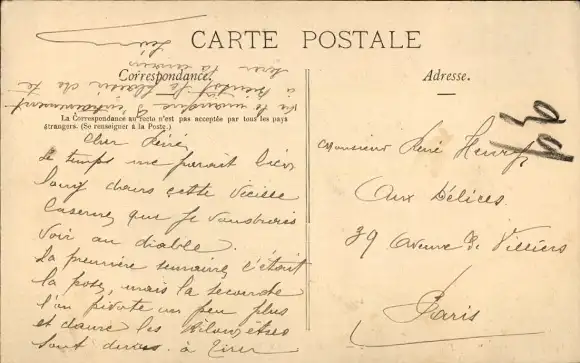 CARTE POSTALE
Correspondance.
Adresse.
La Correspondance au recto n'est pas acceptée par tous les pays
étrangers. (Se renseigner à la Poste.)
Cher René,
Le temps me parait bien
long dans cette vieille
caserne que je voudrais
voir au diable.
La première semaine, c'était
la pose, mais la seconde
l'on pivote un peu plus
et dame les kilomètres
sont durs à tirer
à bientôt le plaisir de te
serrer la main
Monsieur René Henry
Aux Délices
39 Avenue de Villiers
Paris